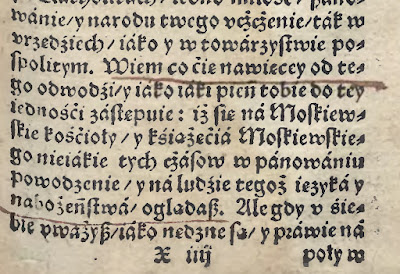 wánie/ y narodu twego vcżcżenie/ ták w
vrzedźiech/ iáko y w towárzystwie po⸗
spolitym. Wiem co ćie nawiecey od te⸗
go odwodźi/ y iáko iáki pień tobie do tey
iednośći zástępuie: iż sie ná Moskiew⸗
skie kośćioły/ y kśiążećiá Moskiewskie⸗
go nieiákie tych cżásow w pánowániu
powodzenie/ y ná ludźie tegoż iezyká y
nabożeństwá/ oglądaß. Ale gdy v śie⸗
bie vważyß/ iáko nedzne są/ y práwie ná
X iiij poły w